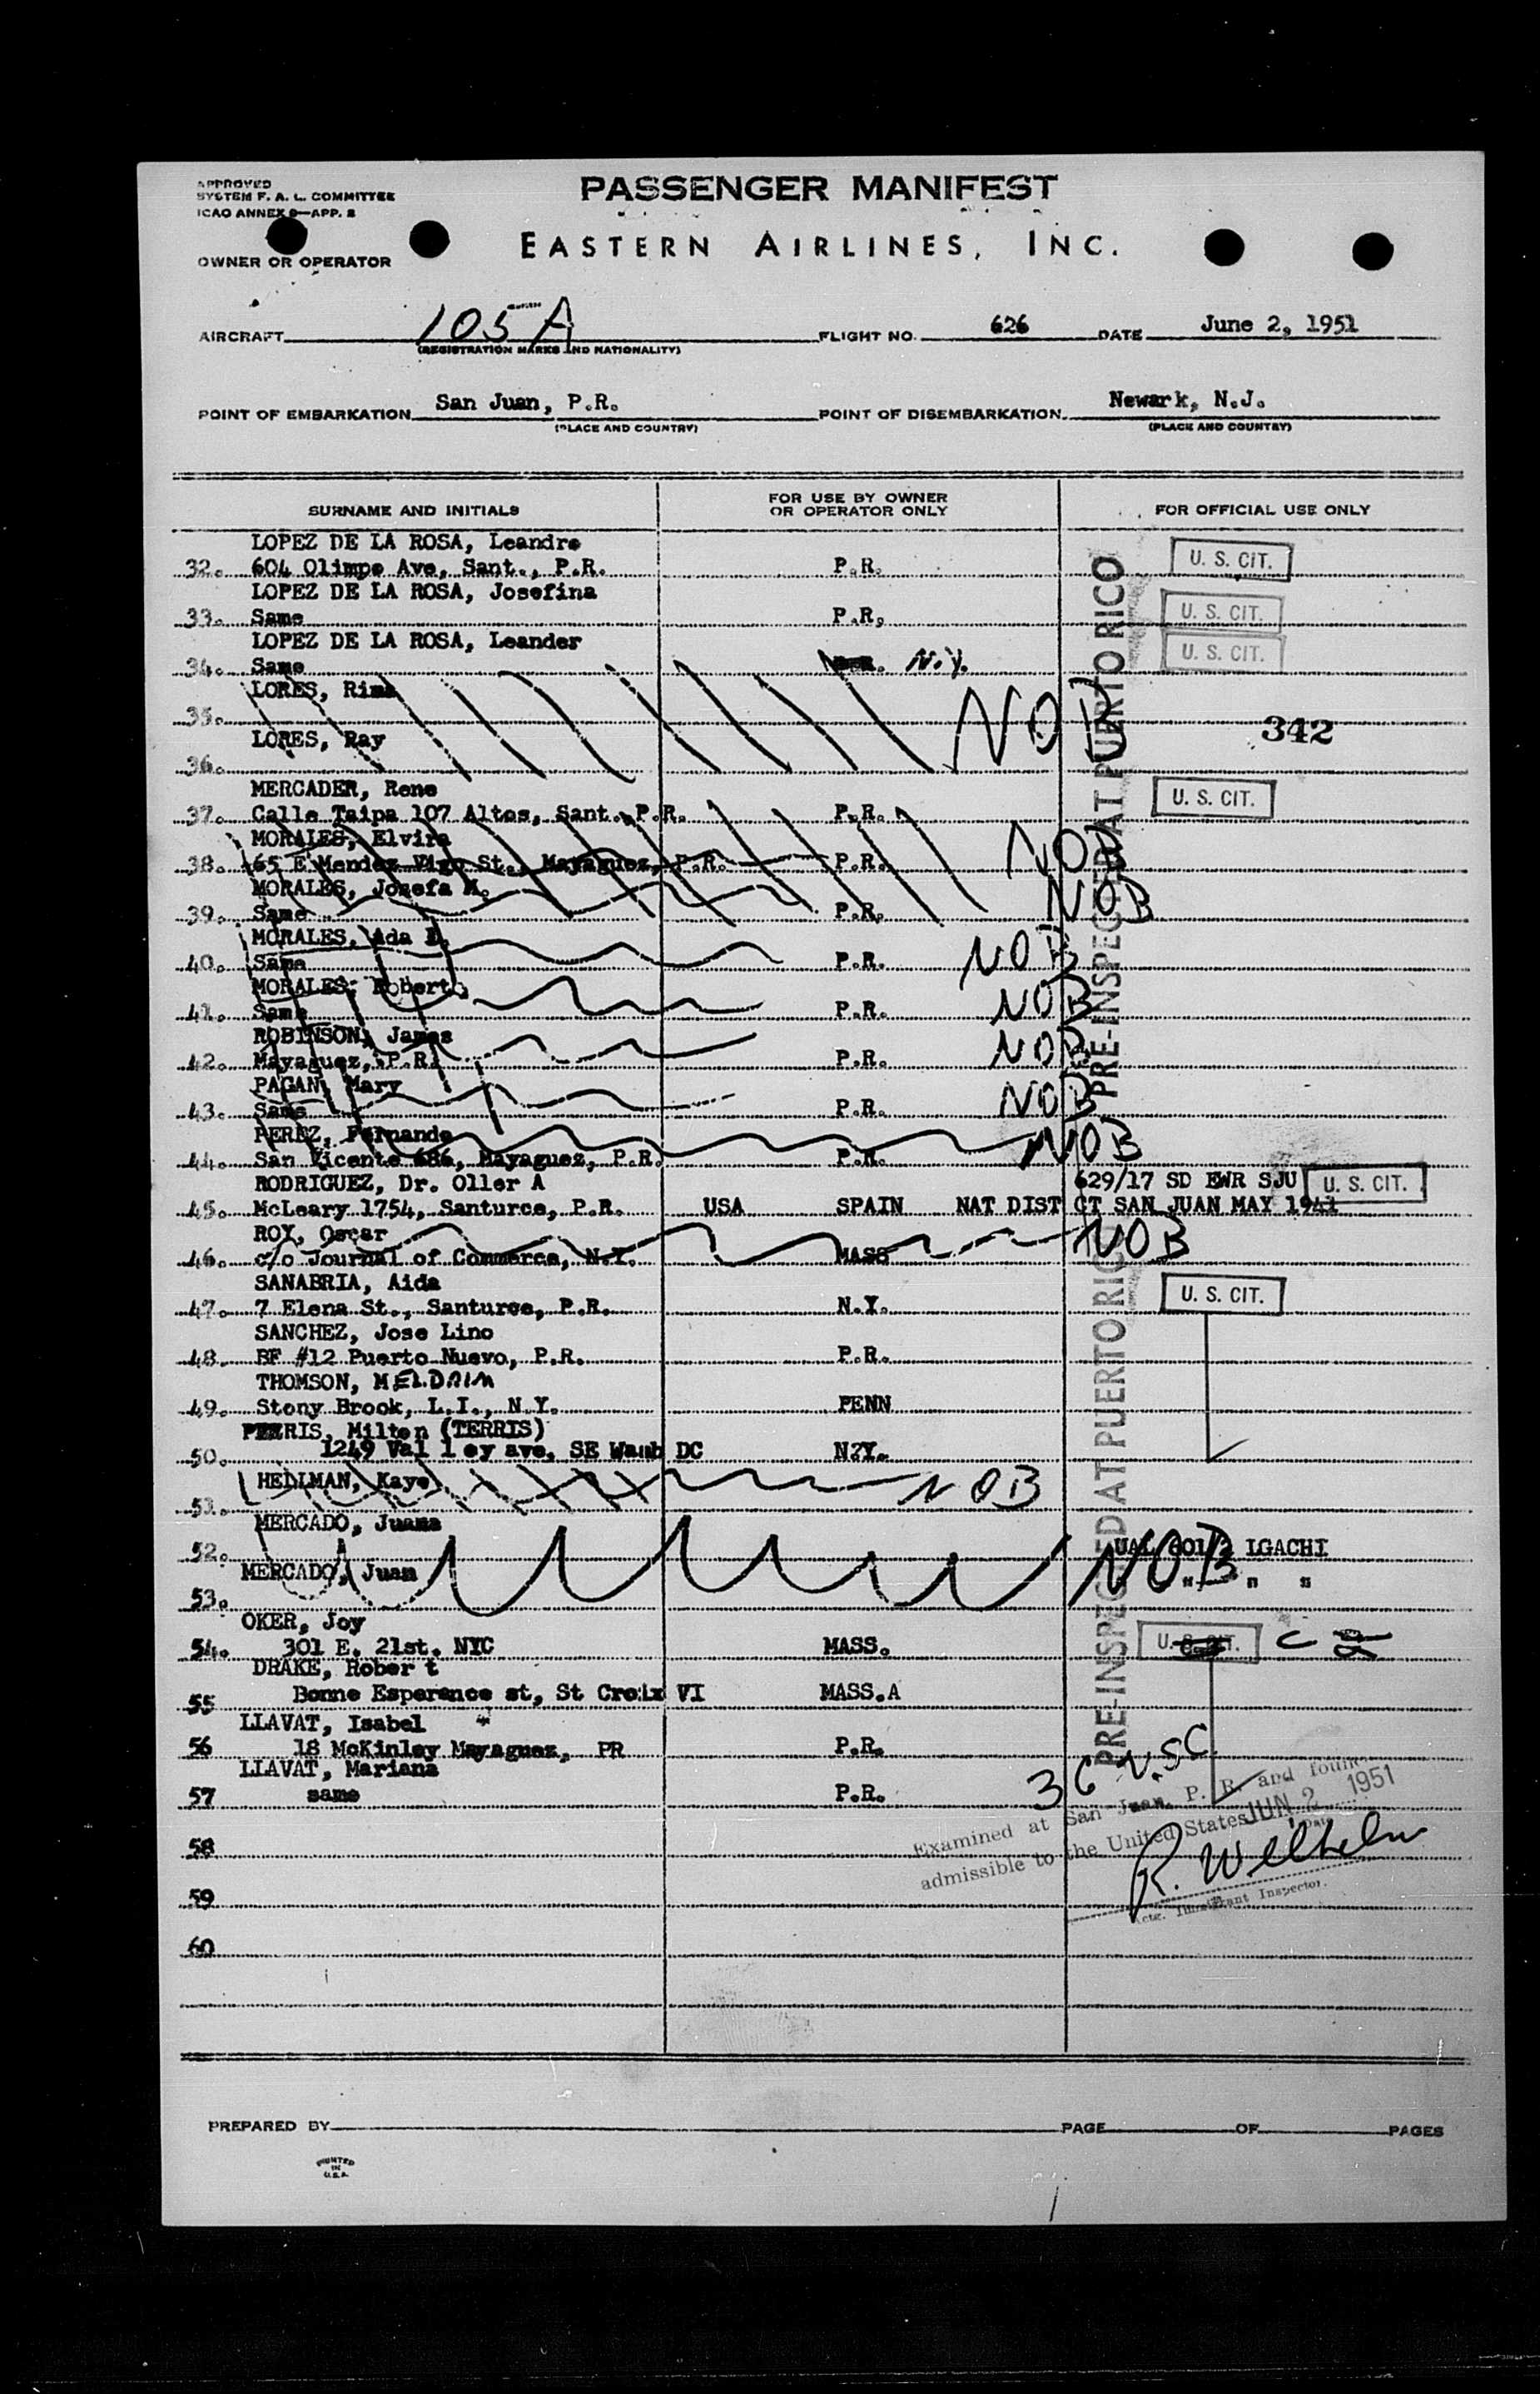 APPROVED
SYSTEM F. A. L. COMMITTEE
ICAO ANNEX 9—APP. 2
PASSENGER MANIFEST
EASTERN AIRLINES, INC.
OWNER OR OPERATOR
AIRCRAFT 105 A FLIGHT NO. 626 DATE June 2, 1951
(REGISTRATION MARKS AND NATIONALITY)
POINT OF EMBARKATION San Juan, P.R. POINT OF DISEMBARKATION Newark, N.J.
(PLACE AND COUNTRY) (PLACE AND COUNTRY)
SURNAME AND INITIALS FOR USE BY OWNER OR OPERATOR ONLY FOR OFFICIAL USE ONLY
PRE-INSPECTED AT PUERTO RICO
LOPEZ DE LA ROSA, Leandro
32. 604 Olimpo Ave, Sant., P.R. P.R. U. S. CIT.
LOPEZ DE LA ROSA, Josefina
33. Same P.R. U. S. CIT.
LOPEZ DE LA ROSA, Leander
34. Same N.Y. U. S. CIT.
LORES, Rima
35. NOB 342
LORES, Ray
36.
MERCADER, Rene
37. Calle Taipa 107 Altos, Sant. P.R. P.R. U. S. CIT.
MORALES, Elvira
38. 65 E Mendez Vigo St., Mayaguez, P.R. P.R. NOB
MORALES, Josefa M.
39. Same P.R. NOB
MORALES, Ada
40. Same P.R. NOB
MORALES, Roberto
41. Same P.R. NOB
ROBINSON, James
42. Mayaguez, P.R. P.R. NOB
PAGAN, Mary
43. Same P.R. NOB
PEREZ, Fernando
44. San Vicente 686, Mayaguez, P.R. P.R. NOB
RODRIGUEZ, Dr. Oller A 629/17 SD EWR SJU U. S. CIT.
45. McLeary 1754, Santurce, P.R. USA SPAIN NAT DIST CT SAN JUAN MAY 1941
ROY, Oscar
46. c/o Journal of Commerce, N.Y. MASS NOB
SANABRIA, Aida
47. 7 Elena St., Santurce, P.R. N.Y. U. S. CIT.
SANCHEZ, Jose Lino
48. BF #12 Puerto Nuevo, P.R. P.R.
THOMSON, MELDRIM
49. Stony Brook, L.I., N.Y. PENN
PERRIS, Milton (TERRIS)
50. 1249 Val l ey ave, SE Wash DC N?Y.
HELLMAN, Kaye NOB
51.
MERCADO, Juana
52. UAL 601/2 IGACHI
MERCADO, Juan NOB " " "
53.
OKER, Joy
54. 301 E. 21st. NYC MASS. U. S. CIT.
DRAKE, Rober t
55 Bonne Esperance st, St Croix VI MASS.A
LLAVAT, Isabel
56 18 McKinley Mayaguez, PR P.R.
LLAVAT, Mariana
57 same P.R. 36 USC
58
59
60
PRE-INSPECTED AT PUERTO RICO
Examined at San Juan, P. R. and found
admissible to the United States JUN 2 1951
Date
R. Wilhelm
Actg. Immigrant Inspector.
PREPARED BY PAGE OF PAGES
PRINTED
IN
U.S.A.